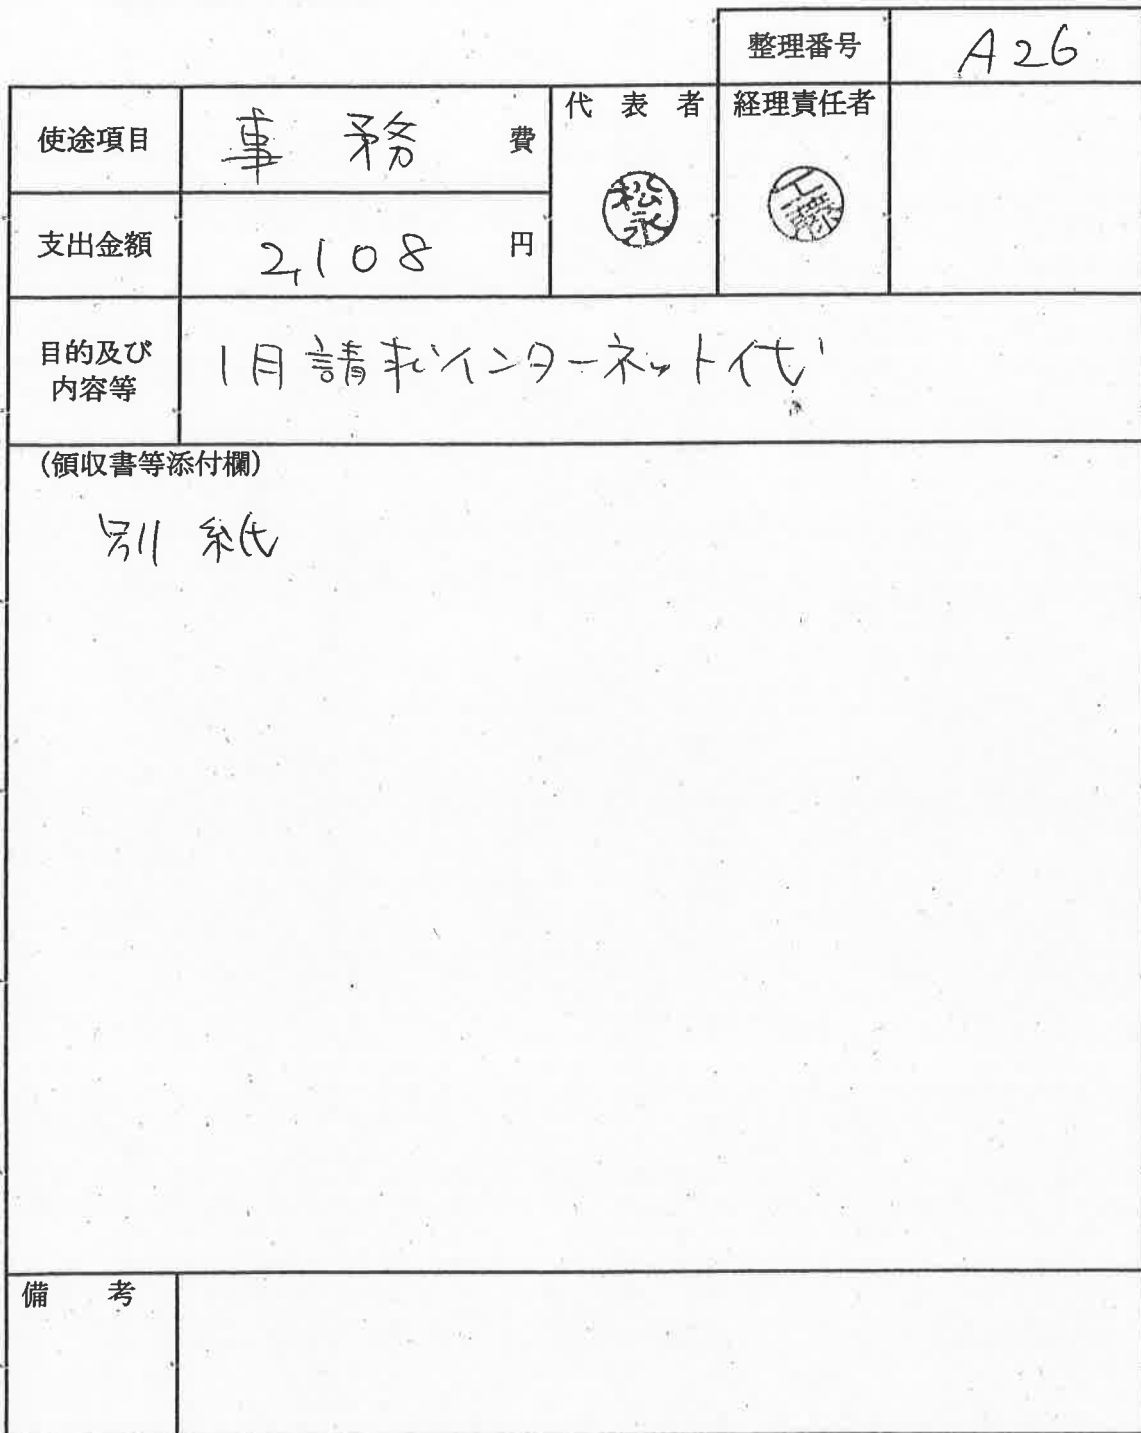 整理番号 A26
使途項目 事務 費
代表者 経理責任者
松永 工藤
支出金額 2,108 円
目的及び内容等 1月請求インターネット代
(領収書等添付欄)
別紙
備考